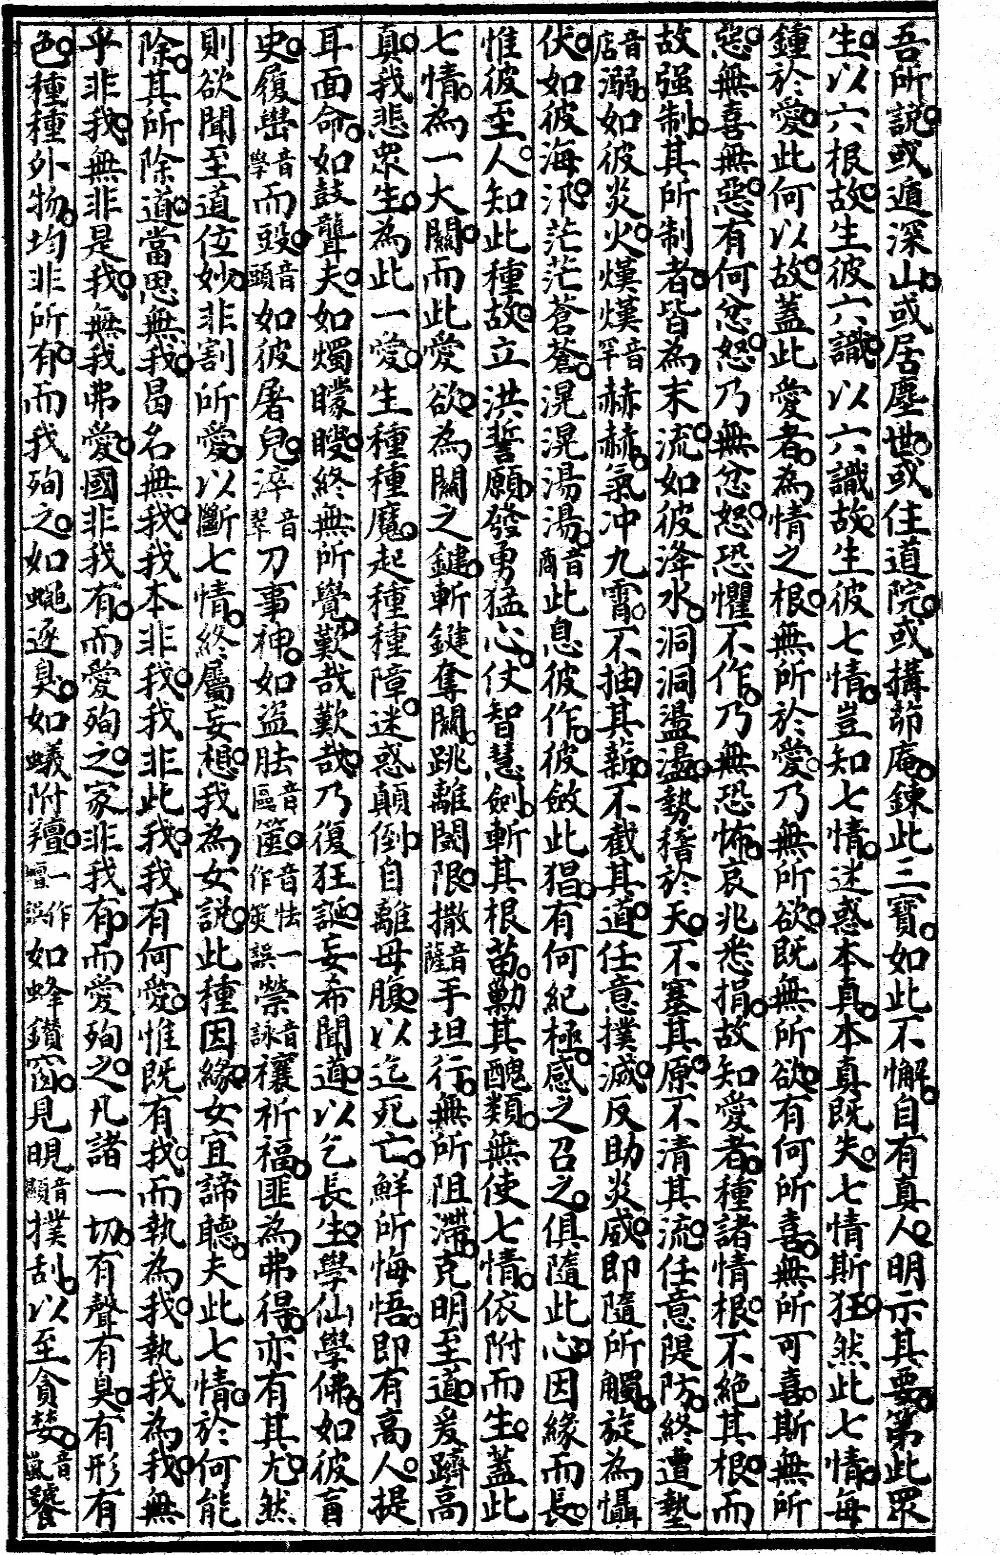 吾所說或遁深山或居塵世或住道院或搆茆庵鍊此三寶如此不懈自有真人明示其要第此眾
生以六根故生彼六識以六識故生彼七情豈知七情迷惑本真本真既失七情斯狂然此七情每
鍾於愛此何以故蓋此愛者為情之根無所於愛乃無所欲既無所欲有何所喜無所可喜斯無所
惡無喜無惡有何忿怒乃無忿怒恐懼不作乃無恐怖哀兆悉捐故知愛者種諸情根不絕其根而
故强制其所制者皆為末流如彼洚水洞洞盪盪勢稽於天不塞其原不清其流任意隄防終遭墊
音店溺如彼炎火熯熯音罕赫赫氣冲九霄不抽其薪不截其道任意撲滅反助炎威即隨所觸旋為懾
伏如彼海汛茫茫蒼蒼滉滉湯湯音商此息彼作彼斂此猖有何紀極感之召之俱隨此心因緣而長
惟彼至人知此種故立洪誓願發勇猛心仗智慧劍斬其根苗勦其醜類無使七情依附而生蓋此
七情為一大關而此愛欲為關之鍵斬鍵奪關跳離閫限撒音薩手坦行無所阻滯克明至道爰躋高
真我悲眾生為此一愛生種種魔起種種障迷惑顛倒自離母腹以迄死亡鮮所悔悟即有高人提
耳面命如鼓聾夫如燭矇瞍終無所覺歎哉歎哉乃復狂誕妄希聞道以乞長生學仙學佛如彼盲
史履嶨音學而毀音頭如彼屠兒淬音翠刀事神如盜胠音區篋音怯一作筴誤禜音詠禳祈福匪為弗得亦有其尤然
則欲聞至道位妙非割所愛以斷七情終屬妄想我為女說此種因緣女宜諦聽夫此七情於何能
除其所除道當思無我曷名無我我本非我我非此我我有何愛惟既有我而執為我執我為我無
乎非我無非是我無我弗愛國非我有而愛殉之家非我有而愛殉之凡諸一切有聲有臭有形有
色種種外物均非所有而我殉之如蠅逐臭如蟻附羶一作䄠誤如蜂鑽窗見晛音顯撲刮以至貪婪音嵐饕